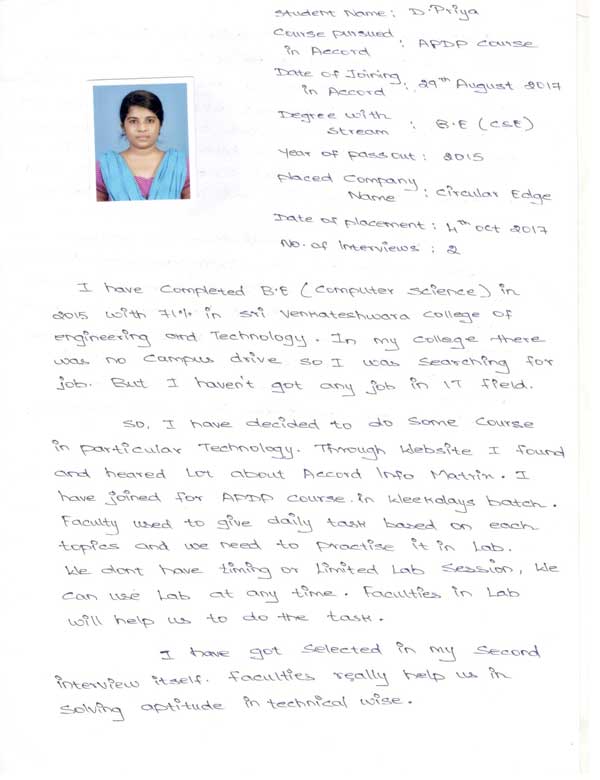 Student Name : D.Priya
Course pursued
in Accord : APDP course
Date of Joining
in Accord : 29th August 2017
Degree with
Stream : B.E (CSE)
Year of passout : 2015
Placed Company
Name : Circular Edge
Date of placement : 4th Oct 2017
No. of Interviews : 2
I have completed B.E (Computer Science) in
2015 with 71% in Sri Venkateshwara College of
engineering and Technology. In my college there
was no campus drive so I was searching for
job. But I haven't got any job in IT field.
So, I have decided to do some course
in particular Technology. Through Website I found
and heared Lot about Accord Info Matrix. I
have joined for APDP course in Weekdays batch.
Faculty used to give daily task based on each
topics and we need to practise it in Lab.
We dont have timing or Limited Lab Session, We
can use Lab at any time. Faculties in Lab
will help us to do the task.
I have got selected in my second
interview itself. Faculties really help us in
Solving aptitude in technical wise.